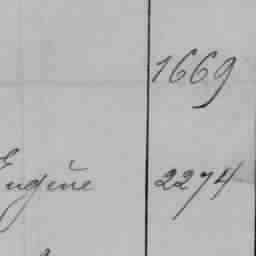 1669
Eugène 2274